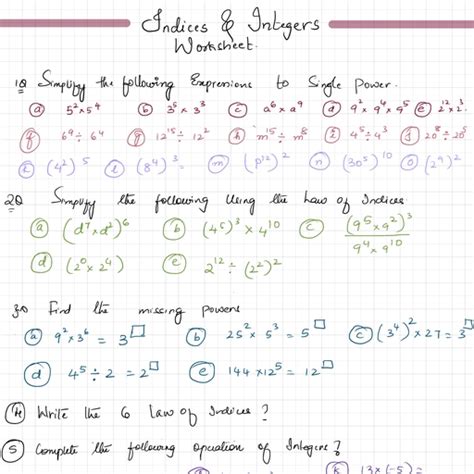 Indices & Integers
Worksheet.
1Q Simplify the following Expressions to Single Power.
(a) 5² × 5⁴ (b) 3⁵ × 3³ (c) a⁶ × a⁹ (d) 9² × 9⁴ × 9⁵ (e) 2¹² × 2³
(f) 6⁹ ÷ 6⁴ (g) 12¹⁵ ÷ 12² (h) m¹⁵ ÷ m⁸ (i) 4⁵ ÷ 4³ (j) 20⁸ ÷ 20⁵
(k) (4²)⁵ (l) (8⁴)³ (m) (p¹²)² (n) (30⁵)¹⁰ (o) (2⁹)²
2Q Simplify the following Using the Law of Indices.
(a) (d⁷ × d²)⁶ (b) (4⁵)³ × 4¹⁰ (c) (9⁵ × 9²)³ / 9⁴ × 9¹⁰
(d) (2⁰ × 2⁴) (e) 2¹² ÷ (2²)²
3Q Find the missing powers
(a) 9² × 3⁶ = 3□ (b) 25² × 5³ = 5□ (c) (3⁴)² × 27 = 3□
(d) 4⁵ ÷ 2 = 2□ (e) 144 × 12⁵ = 12□
(4) Write the 6 Law of Indices ?
(5) Complete the following operation of Integers ?
13 × (-5) =